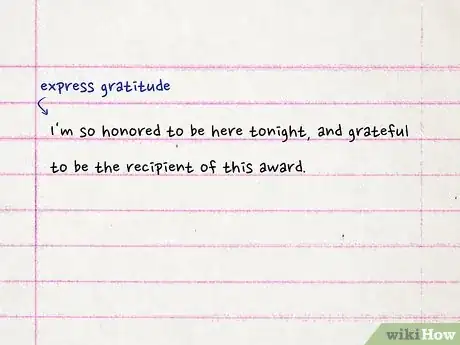 express gratitude
I'm so honored to be here tonight, and grateful
to be the recipient of this award.
wikiHow